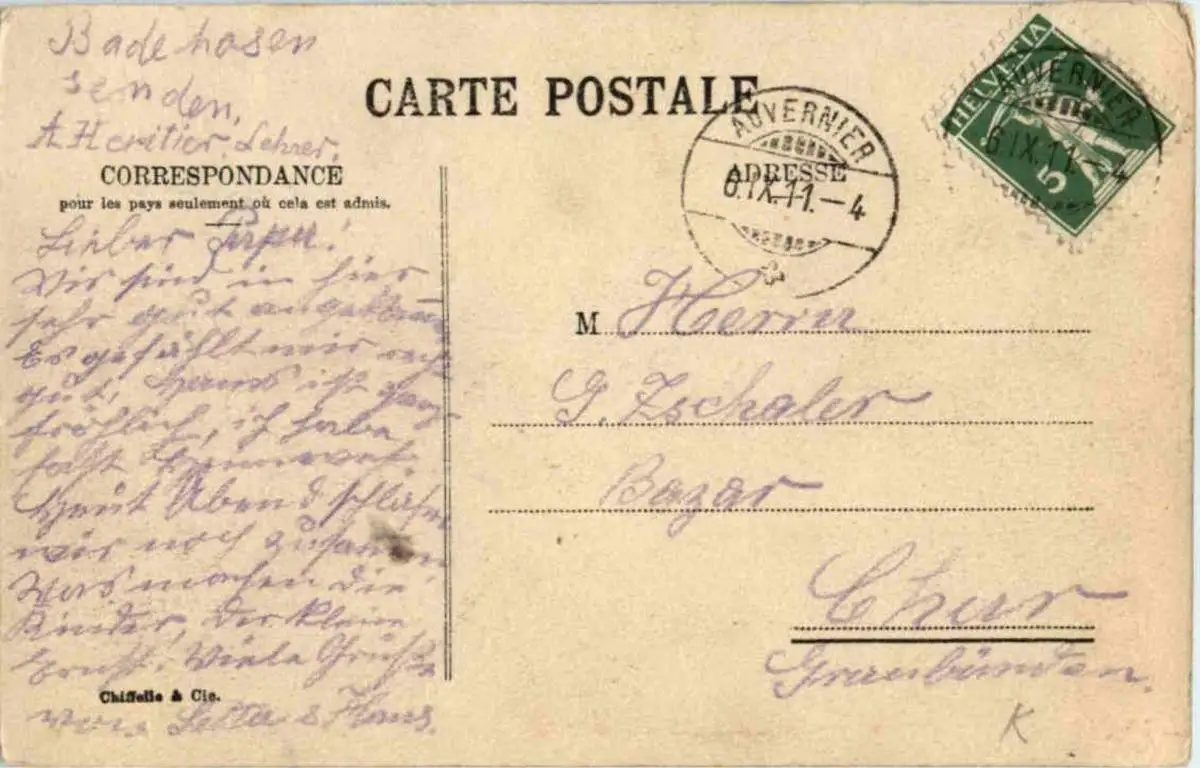 Badehosen
senden,
A. Heritier, Lehrer.
CARTE POSTALE
CORRESPONDANCE
pour les pays seulement où cela est admis.
ADRESSE
AUVERNIER
6.IX.11.–4
HELVETIA
5
AUVERNIER
6.IX.11.–4
Lieber Papa!
Wir sind in hier
sehr gut angekommen
Es gefählt mir recht
gut, Hans ist ganz
fröhlich, ich habe
fast Heimweh.
Heut Abend schlafen
wir noch zusammen.
Was machen die
Kinder, der kleine
Ernst. Viele Grüsse
von &amp; Hans.
Chiffelle & Cie.
M Herrn
G. Zschaler
Bazar
Chur
Graubünden.
K